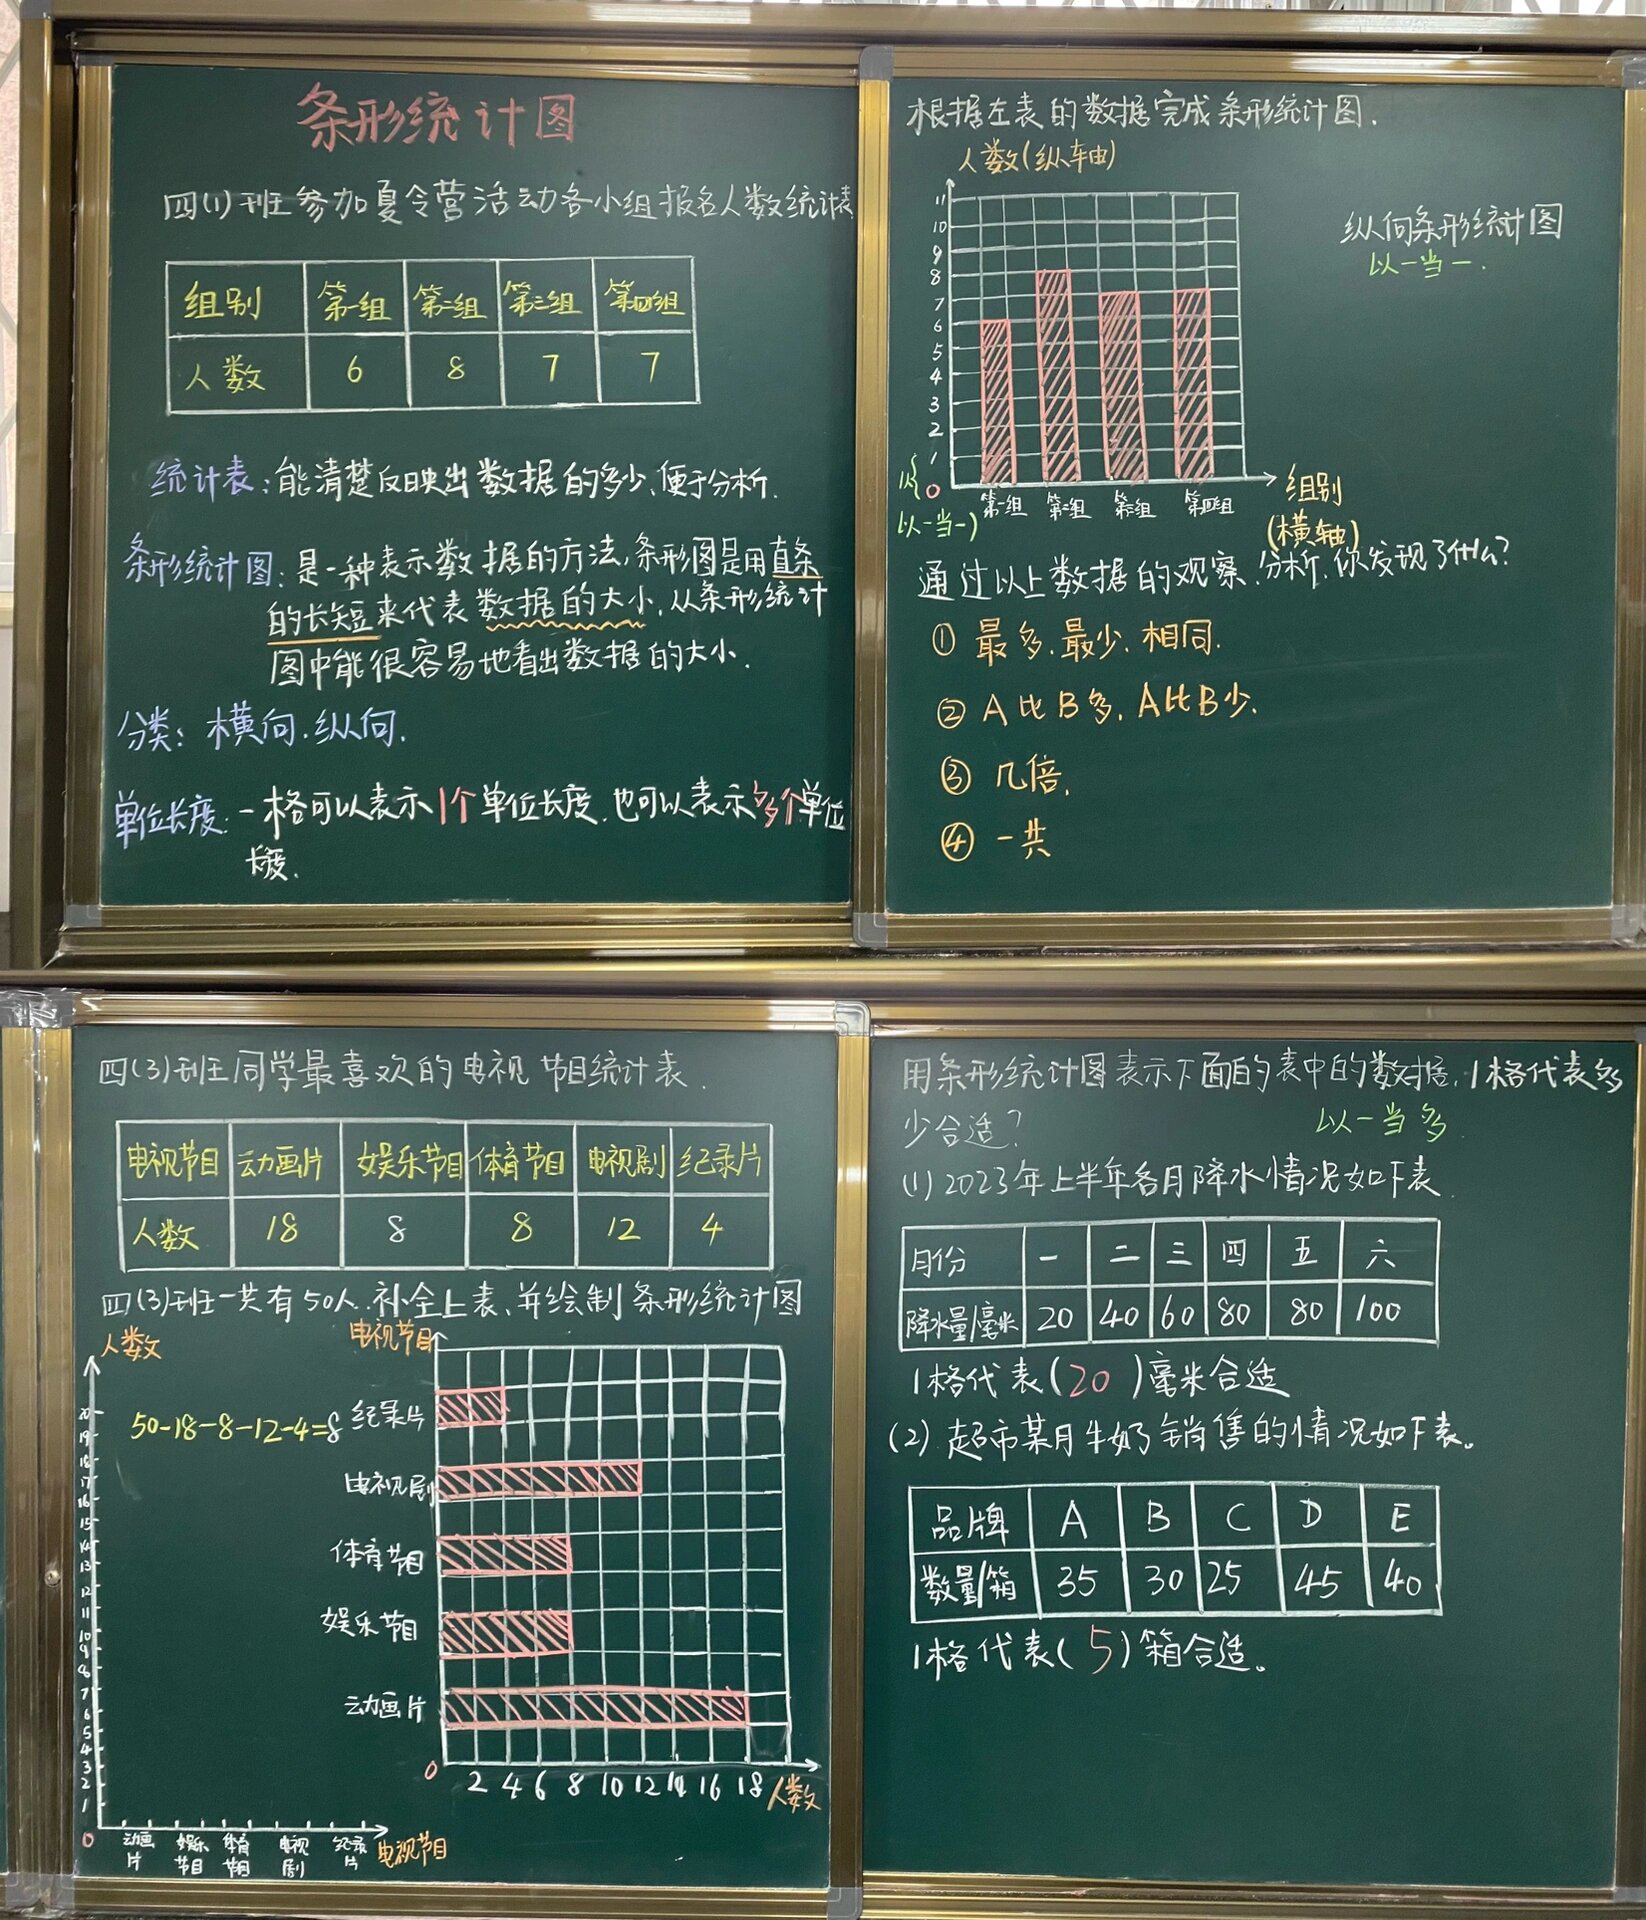 条形统计图
四(1)班参加夏令营活动各小组报名人数统计表
组别 第一组 第二组 第三组 第四组
人数 6 8 7 7
统计表:能清楚反映出数据的多少、便于分析.
条形统计图:是一种表示数据的方法,条形图是用直条
的长短来代表数据的大小,从条形统计
图中能很容易地看出数据的大小.
分类:横向.纵向.
单位长度:一格可以表示1个单位长度.也可以表示多个单位
长度.
根据左表的数据完成条形统计图.
人数(纵轴)
11
10
9
8
7
6
5
4
3
2
1
0
以一当一)
第一组 第二组 第三组 第四组
组别
(横轴)
纵向条形统计图
以一当一.
通过以上数据的观察.分析.你发现了什么?
① 最多.最少.相同.
② A比B多.A比B少.
③ 几倍.
④ 一共
四(3)班同学最喜欢的电视节目统计表.
电视节目 动画片 娱乐节目 体育节目 电视剧 纪录片
人数 18 8 8 12 4
四(3)班一共有50人.补全上表、并绘制条形统计图
人数
20
19
18
17
16
15
14
13
12
11
10
9
8
7
6
5
4
3
2
1
0
动画片 娱乐节目 体育节目 电视剧 纪录片
电视节目
50-18-8-12-4=8
电视节目
纪录片
电视剧
体育节目
娱乐节目
动画片
0 2 4 6 8 10 12 14 16 18 人数
用条形统计图表示下面的表中的数据,1格代表多
少合适?
以一当多
(1)2023年上半年各月降水情况如下表.
月份 一 二 三 四 五 六
降水量/毫米 20 40 60 80 80 100
1格代表(20)毫米合适
(2)超市某月牛奶销售的情况如下表。
品牌 A B C D E
数量/箱 35 30 25 45 40
1格代表(5)箱合适。